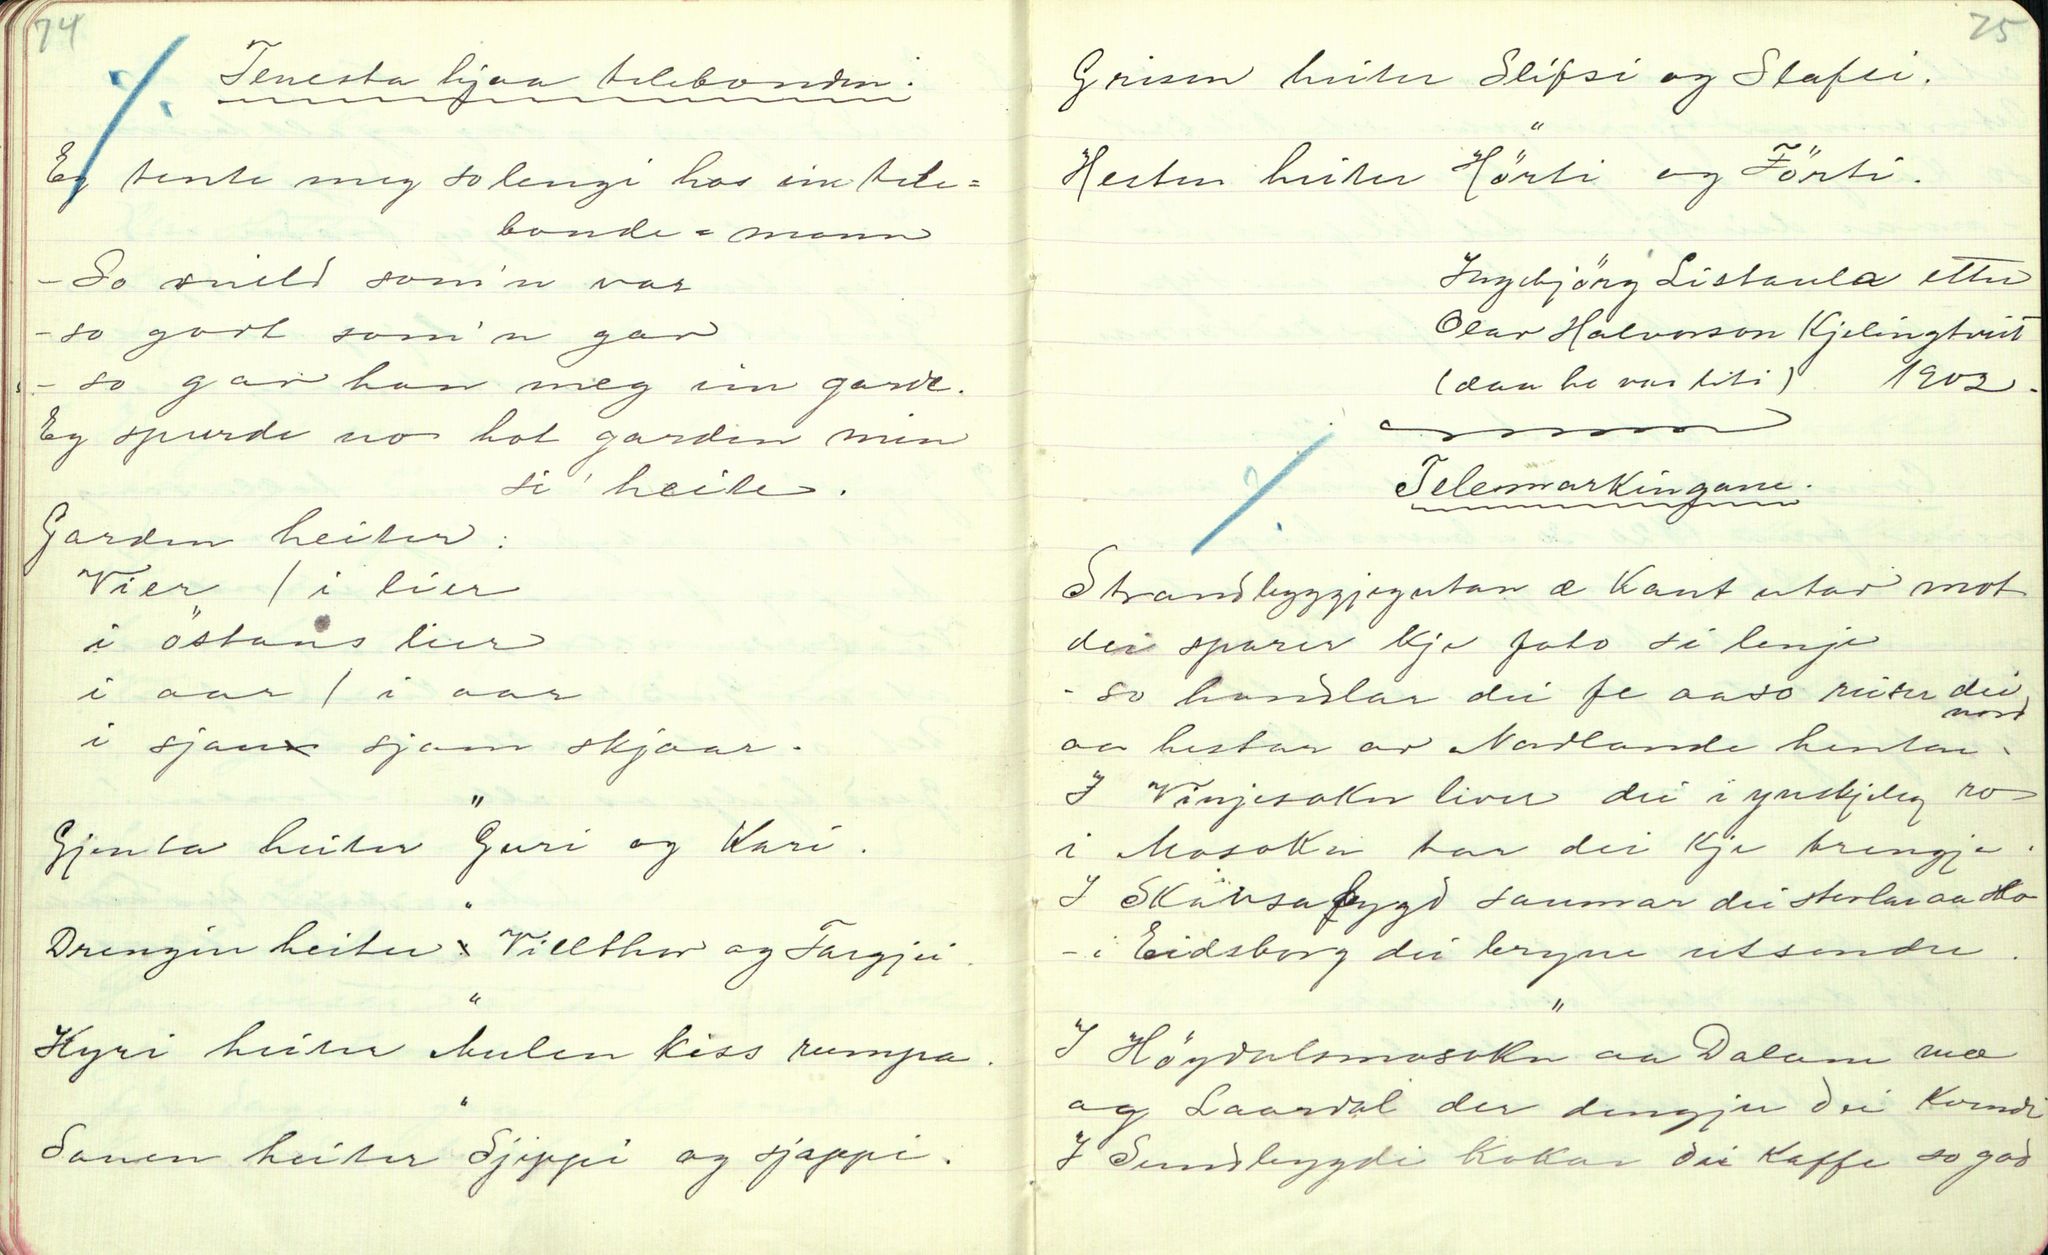 74
Tenesta hjaa telebonden.
Eg tente meg so lengi hos ein tele=
bonde = mann
- So snild som'n var
- so godt som'n gav
- so gav han meg ein gard.
Eg spurde no hot garden min
si' heite.
Garden heiter:
Vier / i lier
i östans lier
i aar / i aar
i sjau sjam skjaar.
"
Gjenta heiter Guri og Kari.
"
Drengin heiter Villthor og Targjei.
"
Kyri heiter Mulen kiss rumpa.
"
Sauen heiter Sjippi og sjappi.
75
Grisen heiter Slifsi og Slafsi.
"
Hesten heiter Hörti og Förti.
Ingebjörg Listaula etter
Olav Halvorson Kjelingtveit
(daa he var liti) 1902.
Telemarkingane.
Strandbyggjegutan æ Kant utav mot
dei sparer kje foto si lenje
- so handlar dei fe aa so reiser dei
nord
aa hestar av Nordlande hentar.
I Vinjesokn liver dei i ynskjeleg ro
i Mosokn tar dei kje trengje.
I Skavsabygd saumar dei stevlar aa sko
- i Eidsborg dei bryne utsender.
"
I Höydalsmosokn aa Dalam mæ
og Laardal der dengjer dei Konndi
I Sundbygdi kokar dei Kaffe so god